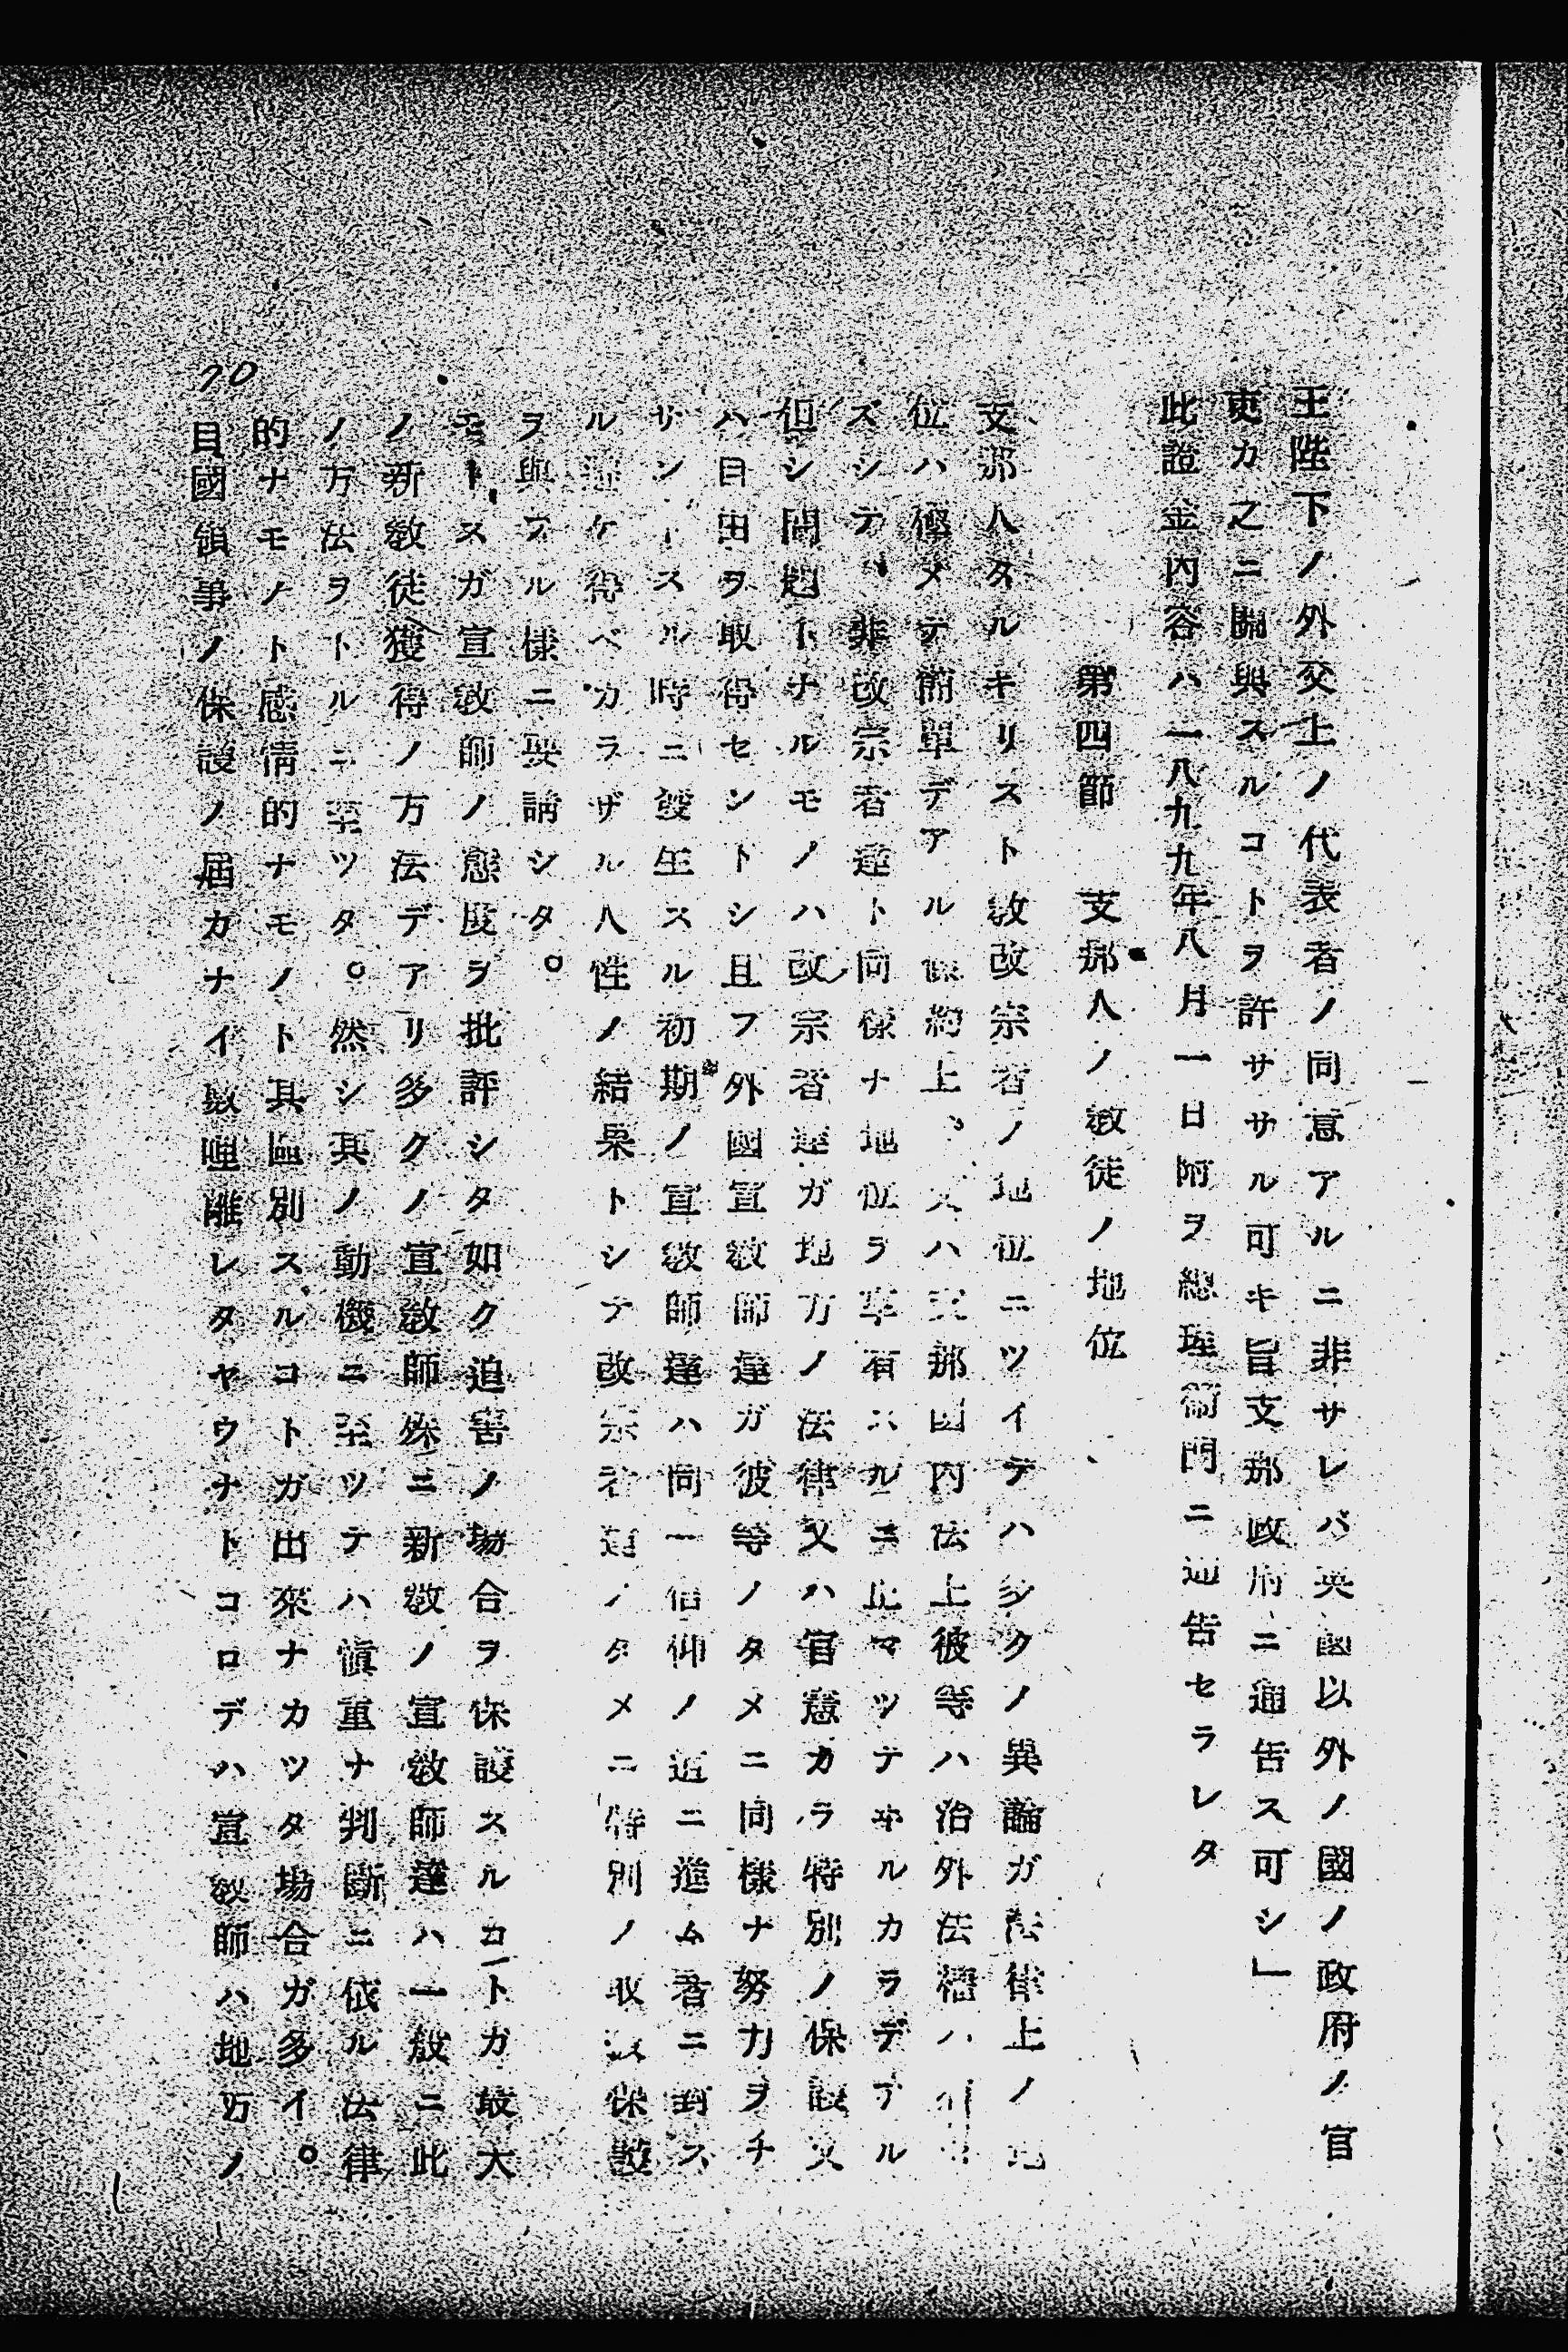 王陛下ノ外交上ノ代表者ノ同意アルニ非サレバ英國以外ノ國ノ政府ノ官
吏カ之ニ關與スルコトヲ許ササル可キ旨支那政府ニ通告ス可シ」
此證金內容ハ一八九九年八月一日附ヲ總理衙門ニ通告セラレタ
第四節 支那人ノ敎徒ノ地位
支那人タルキリスト敎改宗者ノ地位ニツイテハ多クノ異論ガ法律上ノ地
位ハ極メテ簡單デアル 條約上、又ハ支那國內法上彼等ハ治外法權ハ
ズシテ、非改宗者達ト同樣ナ地位ヲ享有スルニ止マツテヰルカラデアル
但シ問題トナルモノハ改宗者達ガ地方ノ法律又ハ官憲カラ特別ノ保護又
ハ自由ヲ取得セントシ且フ外國宣敎師達ガ彼等ノタメニ同樣ナ努力ヲチ
サントスル時ニ發生スル初期ノ宣敎師達ハ同一信仰ノ道ニ進ム者ニ對ス
ル避ケ得ベカラザル人性ノ結果トシテ改宗者達ノタメニ特別ノ取扱保護
ヲ與フル樣ニ要請シタ。
モトスガ宣敎師ノ態度ヲ批評シタ如ク迫害ノ場合ヲ保護スルコトガ最大
ノ新敎徒獲得ノ方法デアリ多クノ宣敎師殊ニ新敎ノ宣敎師達ハ一般ニ此
ノ方法ヲトルニ至ツタ。然シ其ノ動機ニ至ツテハ愼重ナ判斷ニ依ル法律
的ナモノト感情的ナモノト其區別スルコトガ出來ナカツタ場合ガ多イ。
自國領事ノ保護ノ届カナイ以哩離レタヤウナトコロデハ宣敎師ハ地方ノ
70